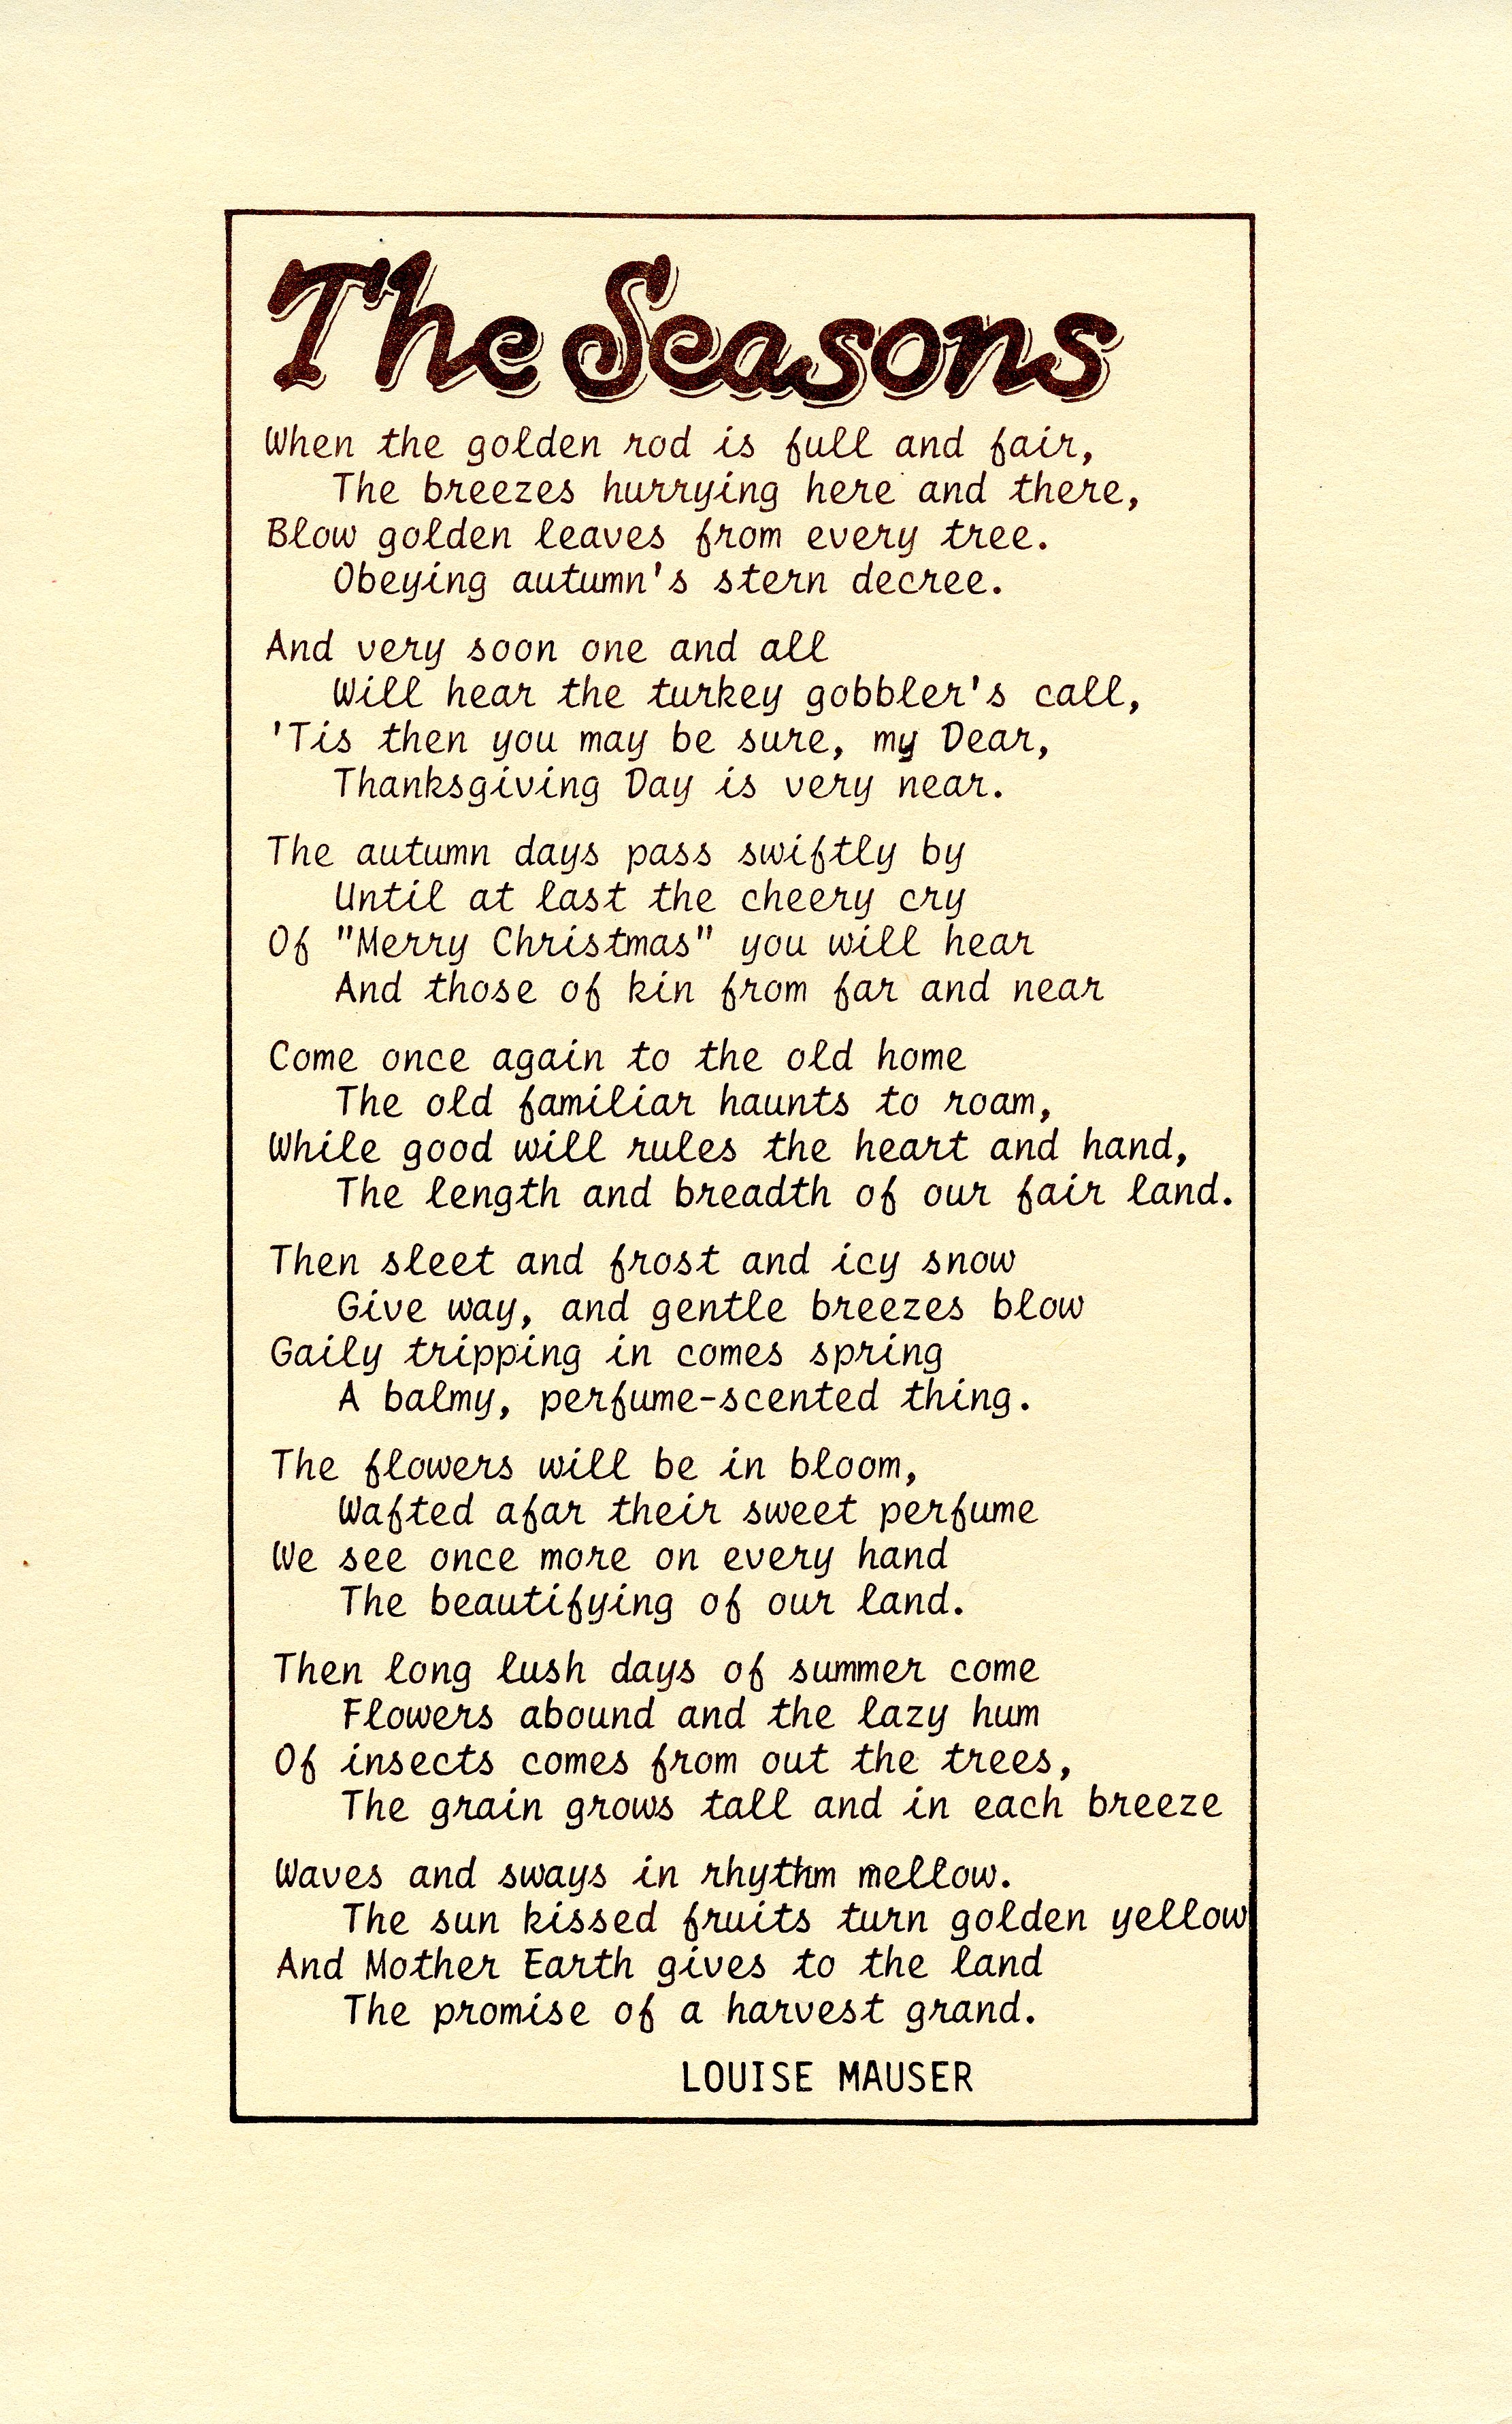 The Seasons
When the golden rod is full and fair,
The breezes hurrying here and there,
Blow golden leaves from every tree.
Obeying autumn's stern decree.
And very soon one and all
Will hear the turkey gobbler's call,
'Tis then you may be sure, my Dear,
Thanksgiving Day is very near.
The autumn days pass swiftly by
Until at last the cheery cry
Of "Merry Christmas" you will hear
And those of kin from far and near
Come once again to the old home
The old familiar haunts to roam,
While good will rules the heart and hand,
The length and breadth of our fair land.
Then sleet and frost and icy snow
Give way, and gentle breezes blow
Gaily tripping in comes spring
A balmy, perfume-scented thing.
The flowers will be in bloom,
Wafted afar their sweet perfume
We see once more on every hand
The beautifying of our land.
Then long lush days of summer come
Flowers abound and the lazy hum
Of insects comes from out the trees,
The grain grows tall and in each breeze
Waves and sways in rhythm mellow.
The sun kissed fruits turn golden yellow
And Mother Earth gives to the land
The promise of a harvest grand.
LOUISE MAUSER